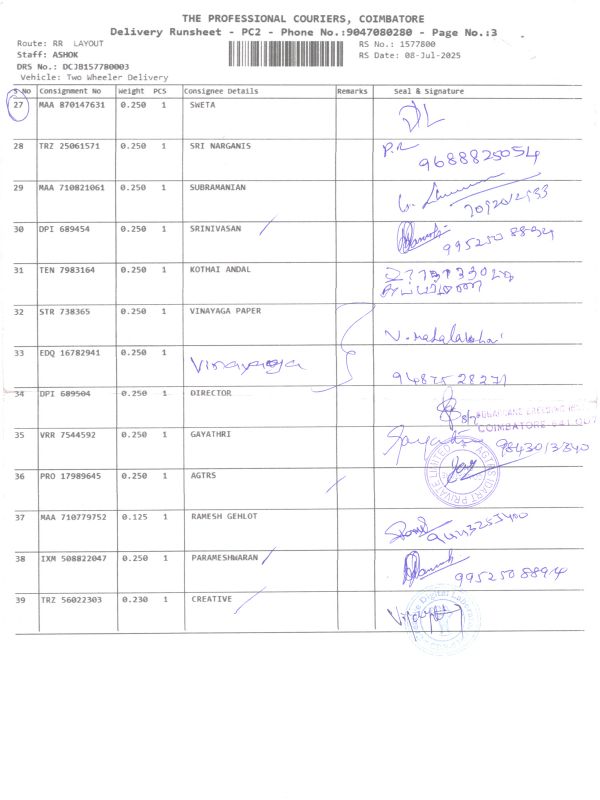 THE PROFESSIONAL COURIERS, COIMBATORE
Delivery Runsheet - PC2 - Phone No.:9047080280 - Page No.:3
Route: RR LAYOUT
RS No.: 1577800
Staff: ASHOK
RS Date: 08-Jul-2025
DRS No.: DCJB157780003
Vehicle: Two Wheeler Delivery
S No Consignment No Weight PCS Consignee Details Remarks Seal & Signature
27 MAA 870147631 0.250 1 SWETA
28 TRZ 25061571 0.250 1 SRI NARGANIS P.R
9688825054
29 MAA 710821061 0.250 1 SUBRAMANIAN
30 DPI 689454 0.250 1 SRINIVASAN
9952508894
31 TEN 7983164 0.250 1 KOTHAI ANDAL
32 STR 738365 0.250 1 VINAYAGA PAPER
V. mahalakshmi
33 EDQ 16782941 0.250 1 Vinayaga
9487528271
34 DPI 689504 0.250 1 DIRECTOR
COIMBATORE-641 007
35 VRR 7544592 0.250 1 GAYATHRI Gayathri 9843013340
36 PRO 17989645 0.250 1 AGTRS
37 MAA 710779752 0.125 1 RAMESH GEHLOT
38 IXM 508822047 0.250 1 PARAMESHWARAN
9952508894
39 TRZ 56022303 0.230 1 CREATIVE